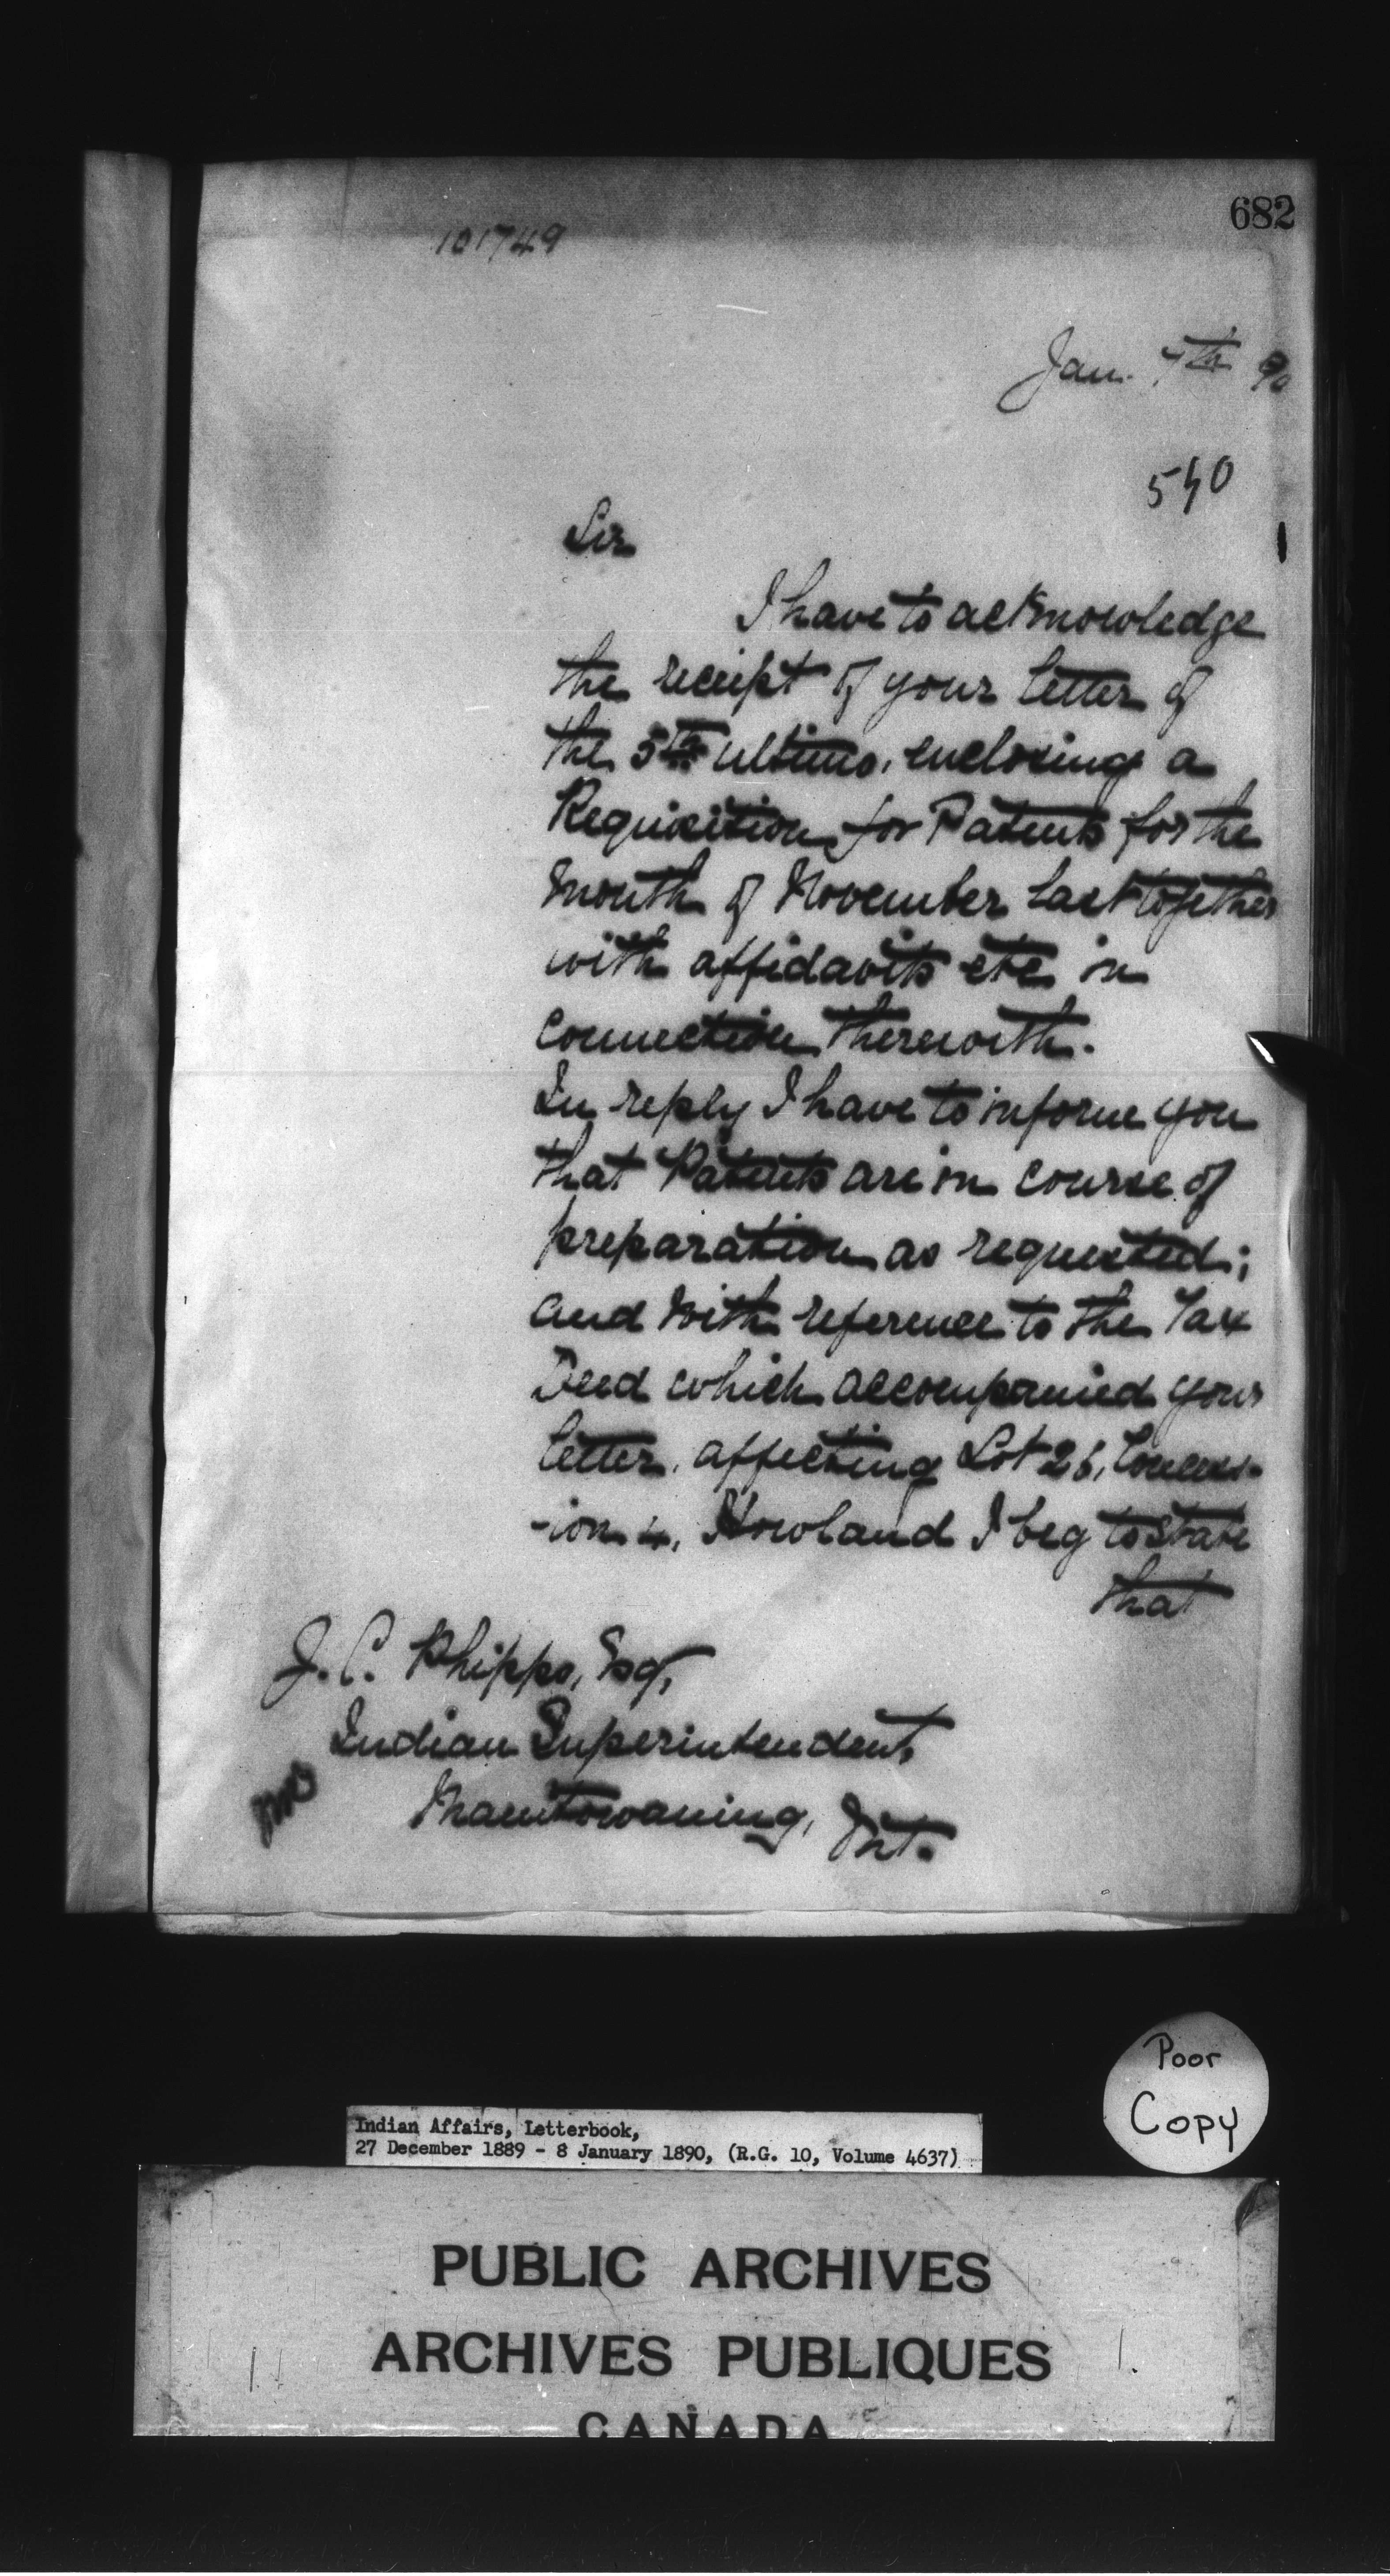 682
101749
Jan. 7th 90
590
Sir
I have to acknowledge
the receipt of your letter of
the 5th ultimo, enclosing a
Requisition for Patents for the
month of November last together
with affidavits etc in
connection therewith.
In reply I have to inform you
that Patents are in course of
preparation as requested;
and with reference to the Tax
Deed which accompanied your
letter, affecting Lot 26, Concess-
-ion 4, Howland I beg to state
that
J. C. Phipps, Esq,
Indian Superintendent,
Manitowaning, Ont.
Poor
Copy
Indian Affairs, Letterbook,
27 December 1889 - 8 January 1890, (R.G. 10, Volume 4637)
PUBLIC ARCHIVES
ARCHIVES PUBLIQUES
CANADA